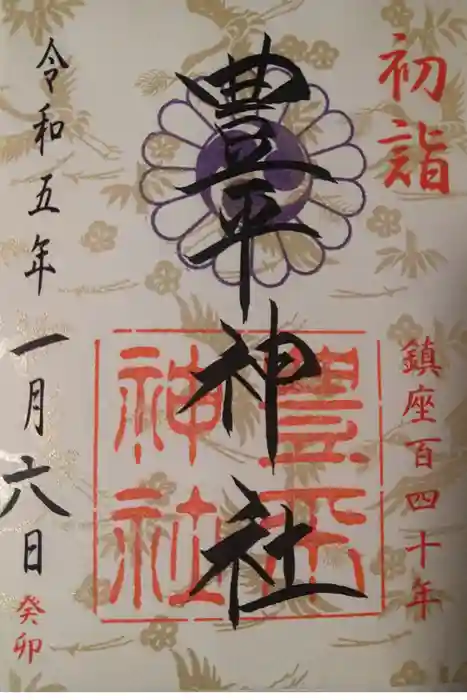 初詣
鎮座百四十年
豊平神社
豊平
神社
令和五年
一月六日
癸卯